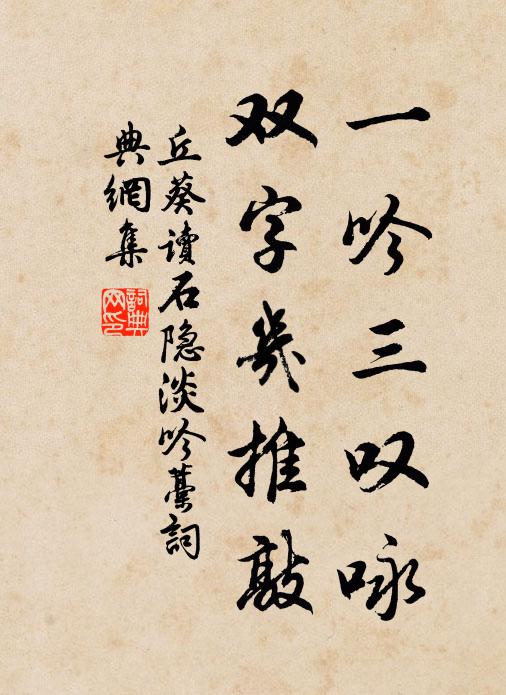 一吟三叹咏
双字几推敲
丘葵读石隐淡吟藁詞
典網集
詞典网印